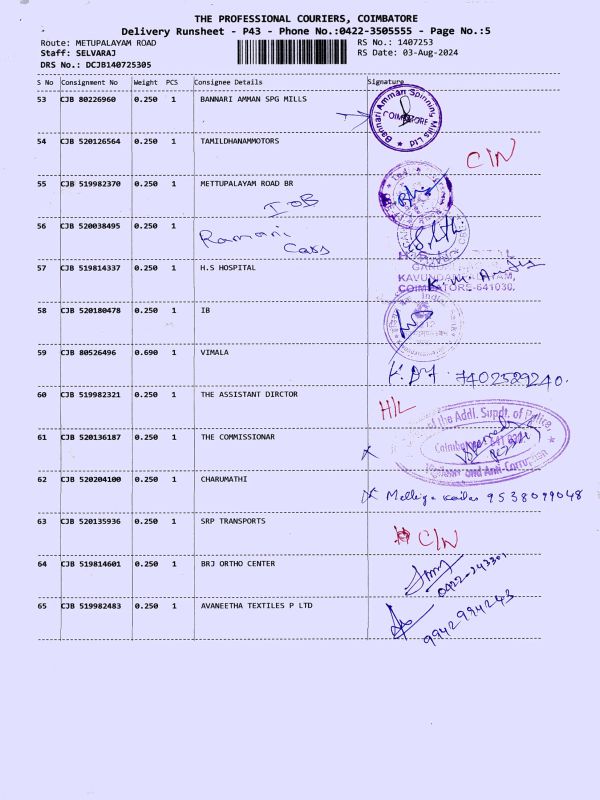 THE PROFESSIONAL COURIERS, COIMBATORE
Delivery Runsheet - P43 - Phone No.:0422-3505555 - Page No.:5
Route: METUPALAYAM ROAD RS No.: 1407253
Staff: SELVARAJ RS Date: 03-Aug-2024
DRS No.: DCJB140725305
S No Consignment No Weight PCS Consignee Details Signature
53 CJB 80226960 0.250 1 BANNARI AMMAN SPG MILLS
Bannari Amman Spinning Mills Ltd
COIMBATORE
54 CJB 520126564 0.250 1 TAMILDHANAMMOTORS
C/N
55 CJB 519982370 0.250 1 METTUPALAYAM ROAD BR
IOB
56 CJB 520038495 0.250 1
Ramani Cars
57 CJB 519814337 0.250 1 H.S HOSPITAL
COIMBATORE-641030.
58 CJB 520180478 0.250 1 IB
59 CJB 80526496 0.690 1 VIMALA
7402589240.
60 CJB 519982321 0.250 1 THE ASSISTANT DIRCTOR
H/L
of the Addl. Supdt. of Police,
61 CJB 520136187 0.250 1 THE COMMISSIONAR
and Anti-Corruption
62 CJB 520204100 0.250 1 CHARUMATHI
9538099048
63 CJB 520135936 0.250 1 SRP TRANSPORTS
C/N
64 CJB 519814601 0.250 1 BRJ ORTHO CENTER
65 CJB 519982483 0.250 1 AVANEETHA TEXTILES P LTD
9942994243